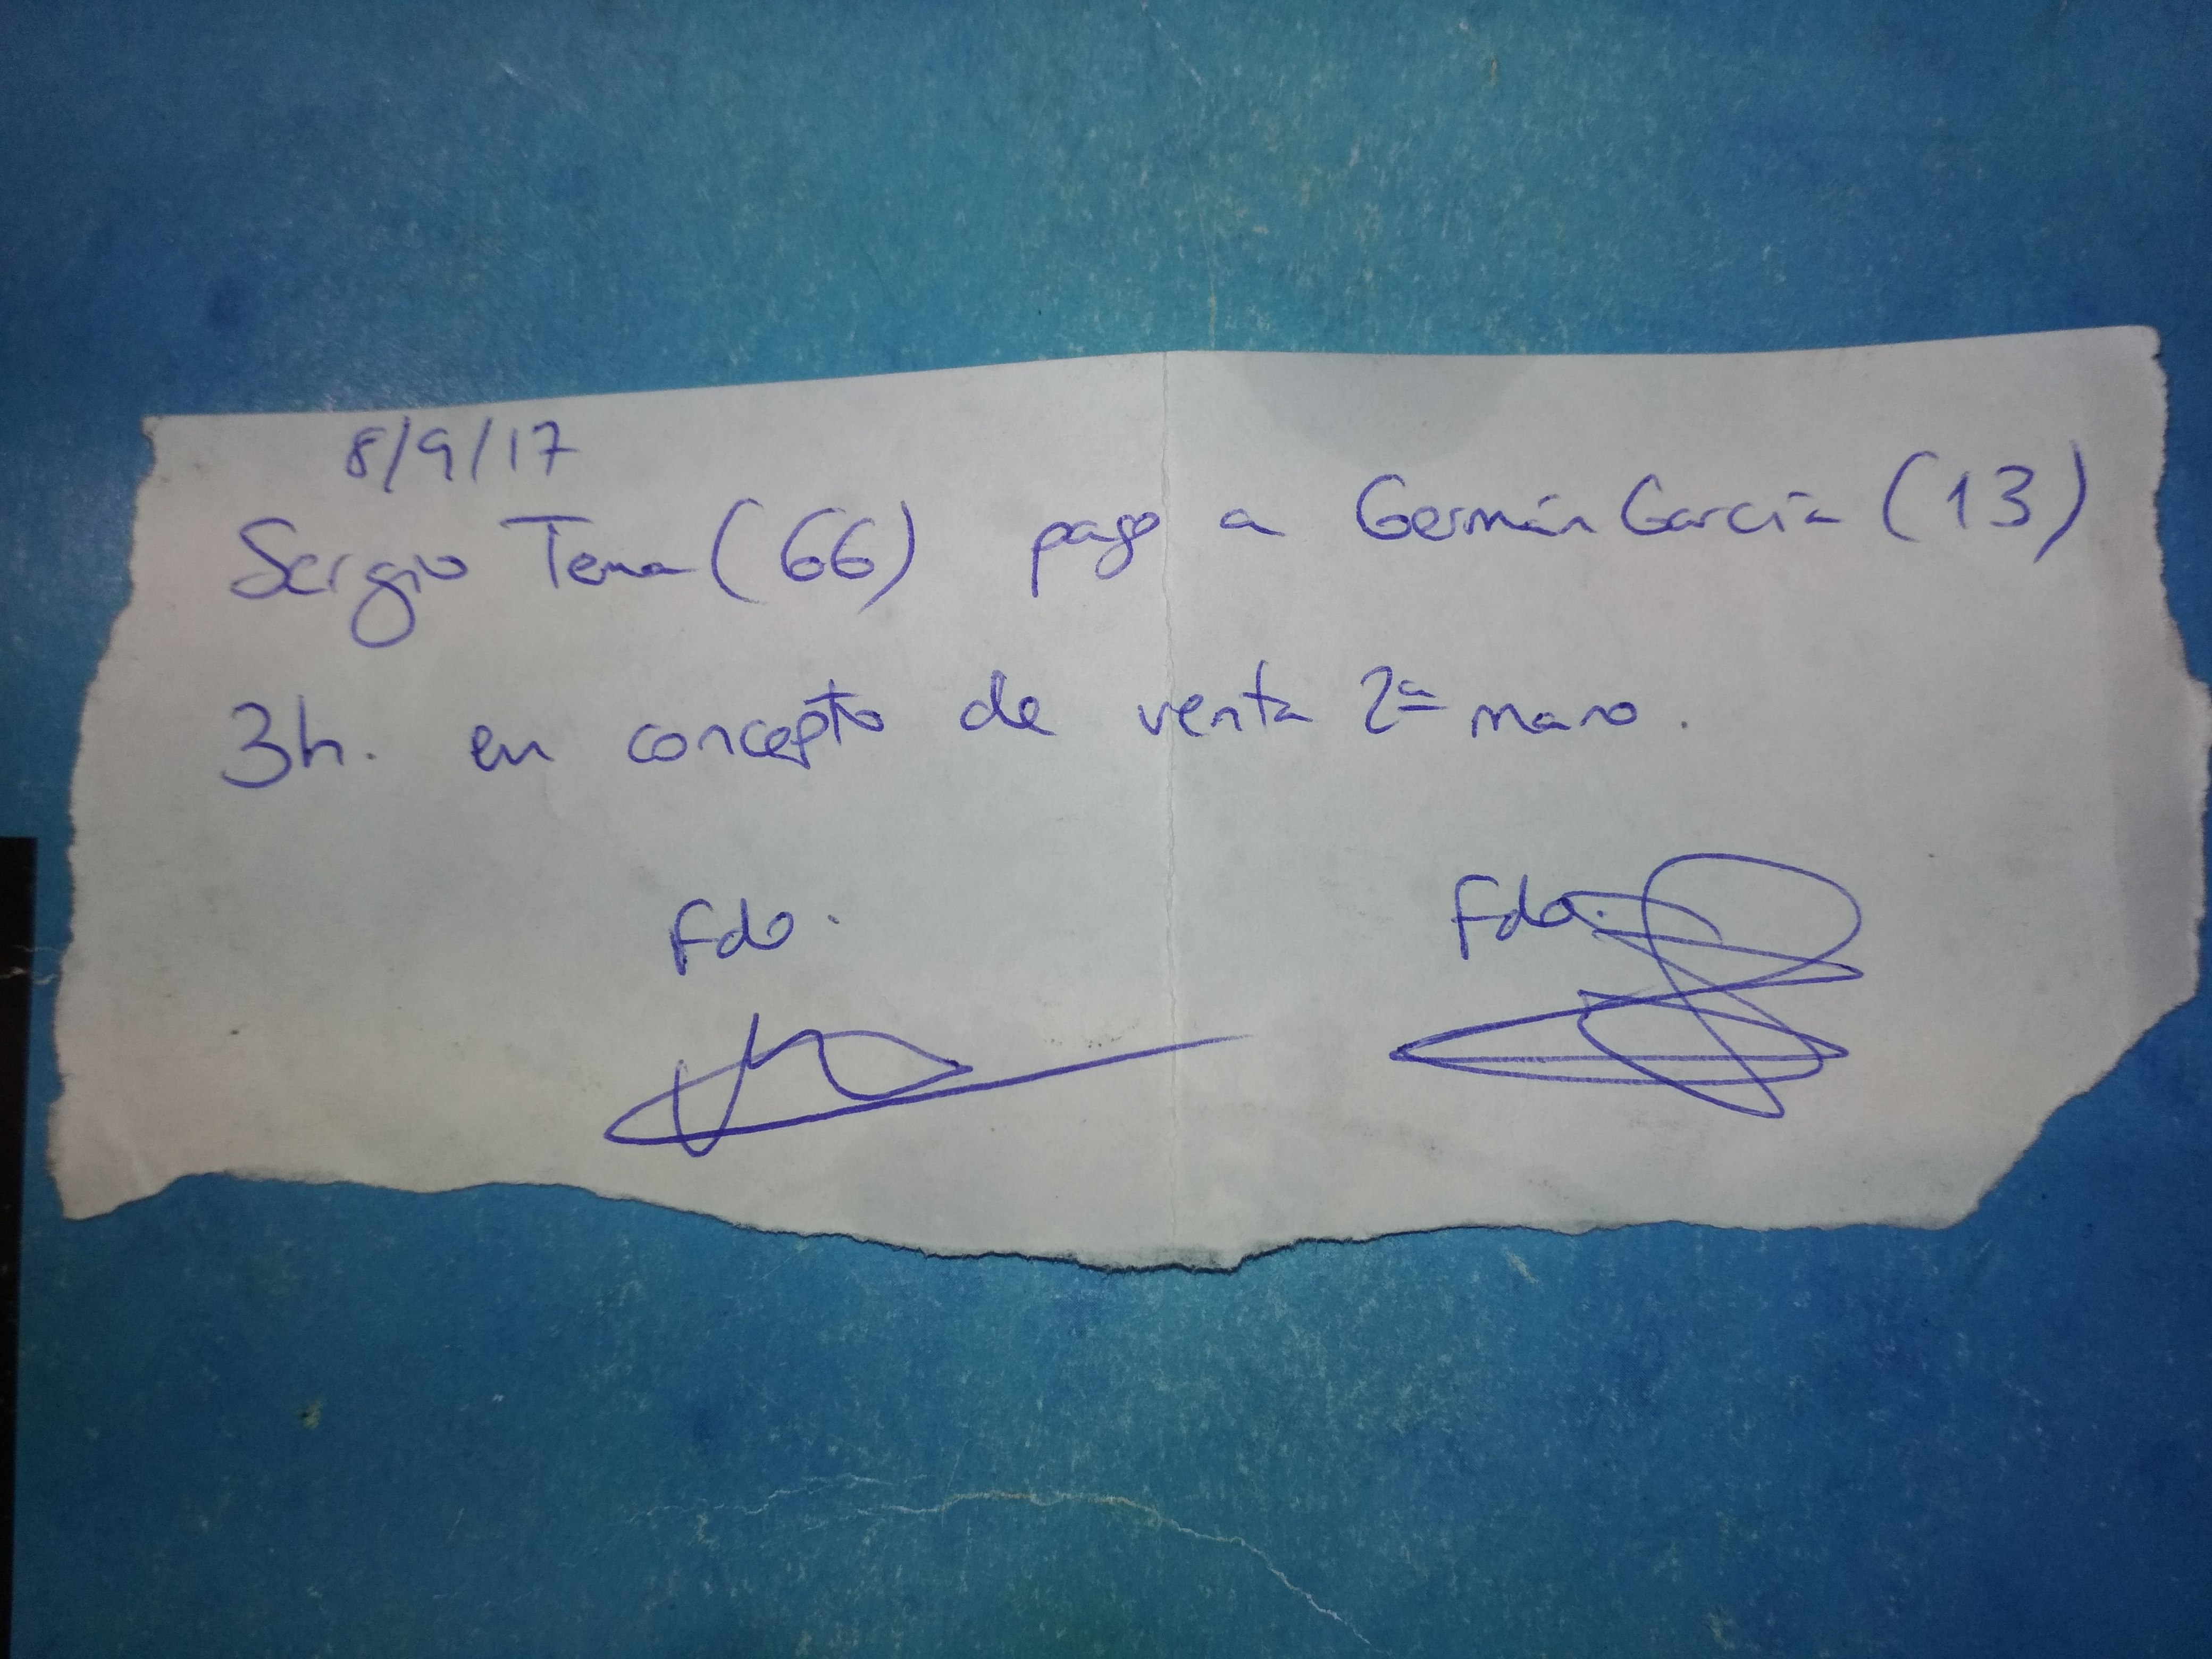 8/9/17
Sergio Tena (66) pago a Germán García (13)
3h. en concepto de venta 2ª mano.
Fdo. Fdo.